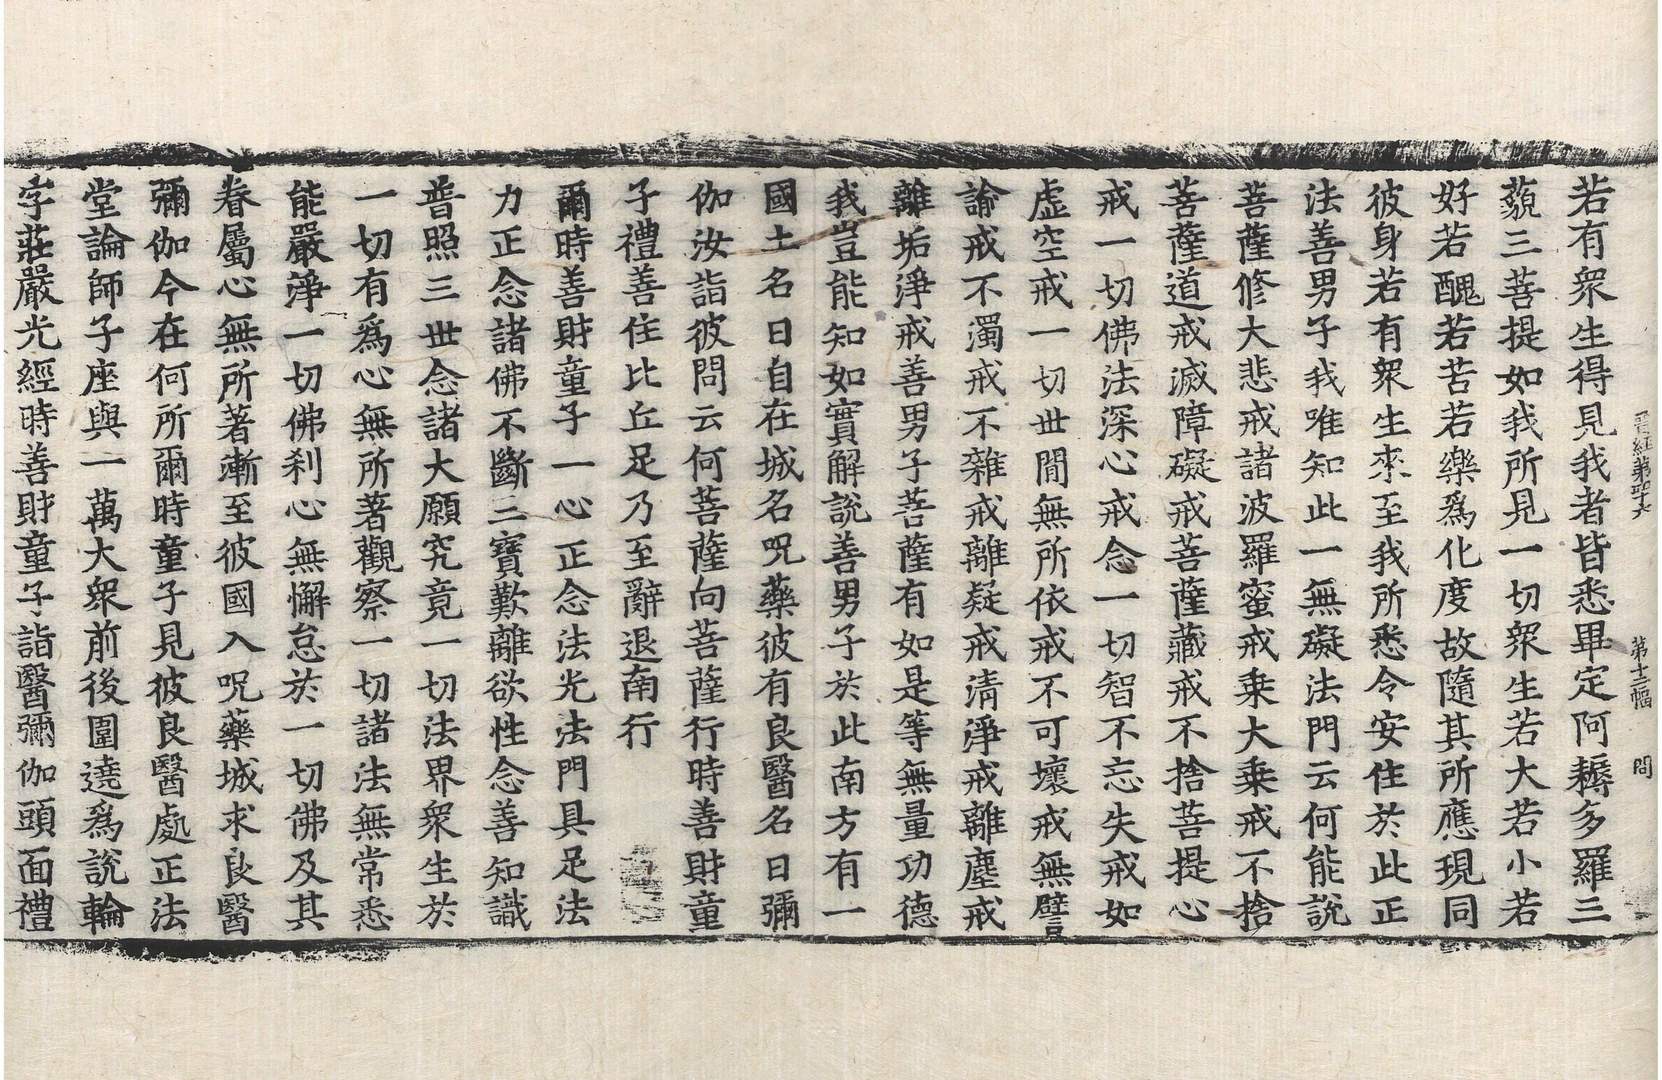 晋經第四十六 第十三幅 問
若有衆生得見我者皆悉畢定阿耨多羅三
藐三菩提如我所見一切衆生若大若小若
好若醜若苦若樂爲化度故隨其所應現同
彼身若有衆生來至我所悉令安住於此正
法善男子我唯知此一無礙法門云何能說
菩薩修大悲戒諸波羅蜜戒乗大乗戒不捨
菩薩道戒滅障礙戒菩薩藏戒不捨菩提心
戒一切佛法深心戒念一切智不忘失戒如
虛空戒一切世閒無所依戒不可壞戒無譬
諭戒不濁戒不雜戒離疑戒清淨戒離塵戒
離垢淨戒善男子菩薩有如是等無量功德
我豈能知如實解說善男子於此南方有一
國土名曰自在城名呪藥彼有良醫名曰彌
伽汝詣彼問云何菩薩向菩薩行時善財童
子禮善住比丘足乃至辭退南行
爾時善財童子一心正念法光法門具足法
力正念諸佛不斷三寶歎離欲性念善知識
普照三世念諸大願究竟一切法界衆生於
一切有爲心無所著觀察一切諸法無常悉
能嚴淨一切佛刹心無懈怠於一切佛及其
眷屬心無所著漸至彼國入呪藥城求良醫
彌伽今在何所爾時童子見彼良醫處正法
堂論師子座與一萬大衆前後圍遶爲說輪
字莊嚴光經時善財童子詣醫彌伽頭面禮